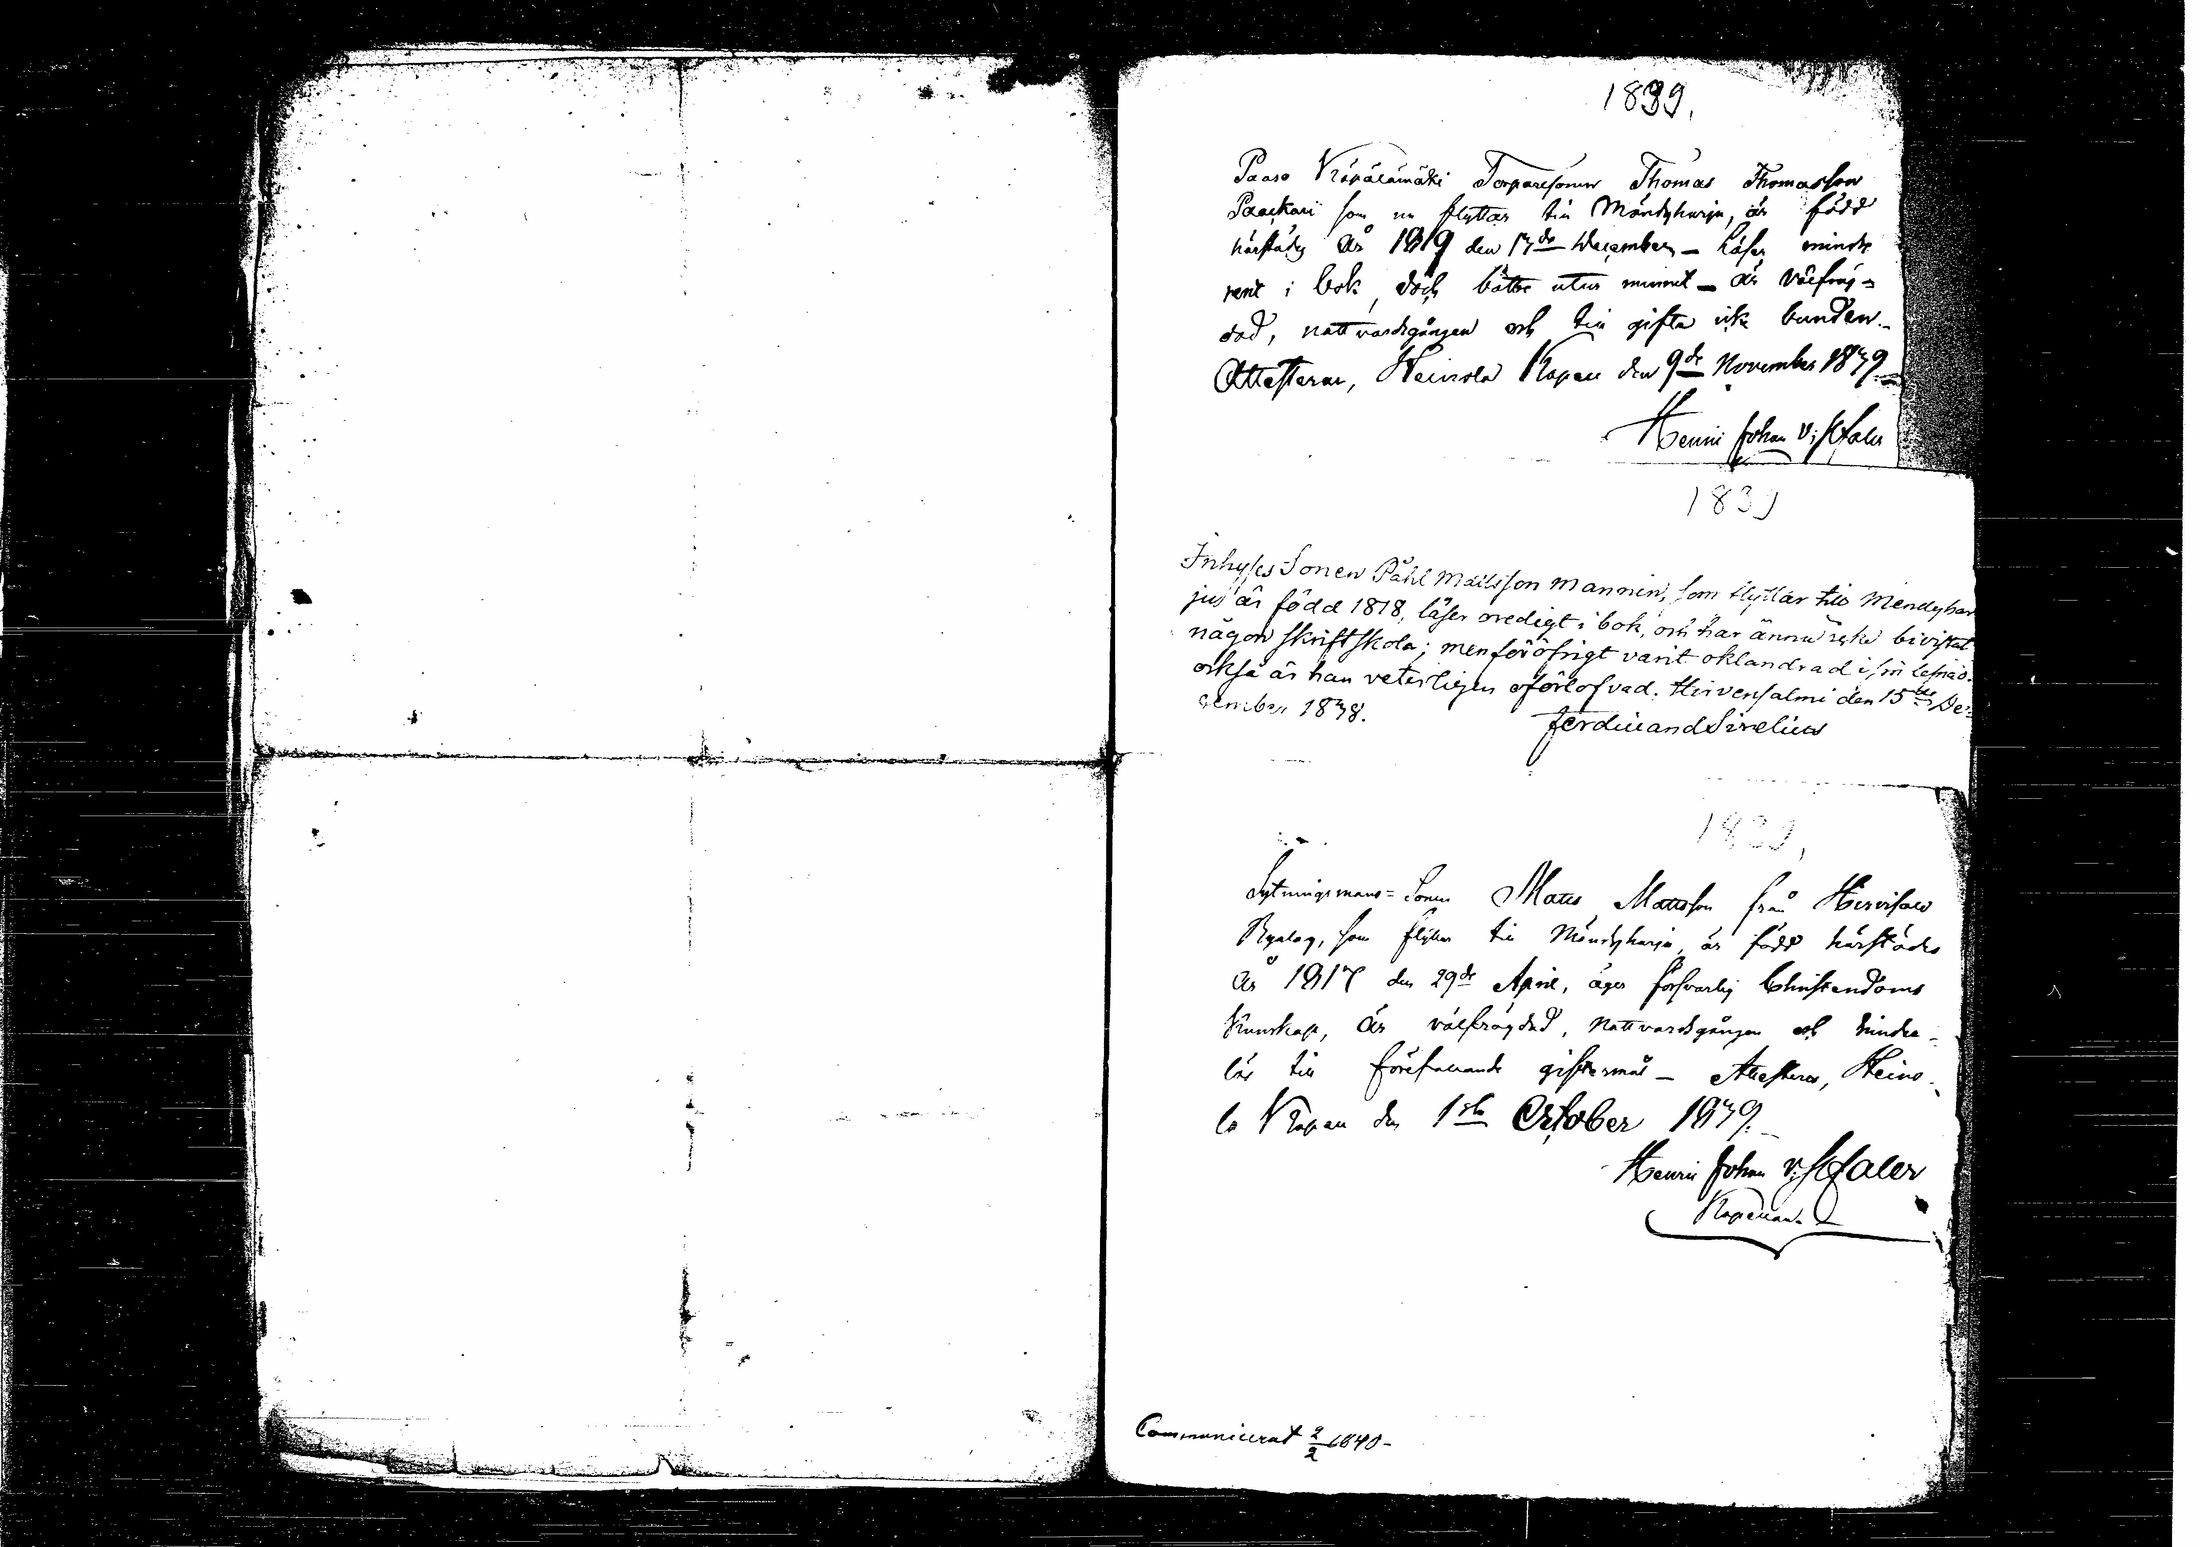 1839.
Paaso Käpälämäki Torparesonen Thomas Thomasson
Paackari som nu flyttar till Mändyharju, är född
härstädes år 1819 den 17de December – Läser mindre
rent i bok, doch bättre utur minnet – är välfräg-
dad, nattvardsgången och till gifte icke bunden.–
Attesterar, Heinola Kapell den 9de November 1839
Henric Johan v; Schaler
1839
Inhyses Sonen Påhl Matsson Mannin, som flyttar till Mendyhar
ju, är född 1818, läser oredigt i bok, och har ännu icke bivistat
någon skriftskola; men föröfrigt varit oklandrad i sin lefnad.
också är han veterligen oförlofvad. Hirvensalmi den 15de De-
cember 1838.
Ferdinand Sirelius
1839,
Sytningsmans-Sonen Matts Mattsson från Hirvisalo
som flyttar till Mändyharju, är född härstädes
År 1817 den 29de April, äger försvarlig Christendoms
Kunskap, är välfrägdad, Nattvardsgången och hinder-
lös till förefallande giftermål – Attesteras, Heino-
la Kapell den 1sta October 1839.–
Henric Johan v; Schaler
Kapellan.
Communicerat 2/2 1840–